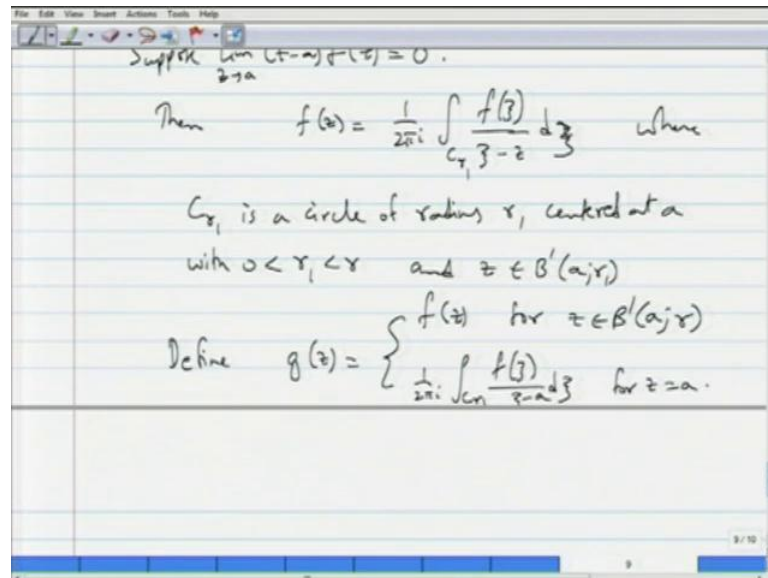 File Edit View Insert Actions Tools Help
Suppose lim (z-a) f(z) = 0.
z→a
Then f(z) = 1/2πi ∫_{C_{r_1}} f(ξ)/(ξ-z) dξ where
C_{r_1} is a circle of radius r_1 centered at a
with 0 < r_1 < r and z ∈ B'(a;r_1)
Define g(z) = { f(z) for z ∈ B'(a;r)
1/2πi ∫_{C_{r_1}} f(ξ)/(ξ-a) dξ for z = a.
9/10
9